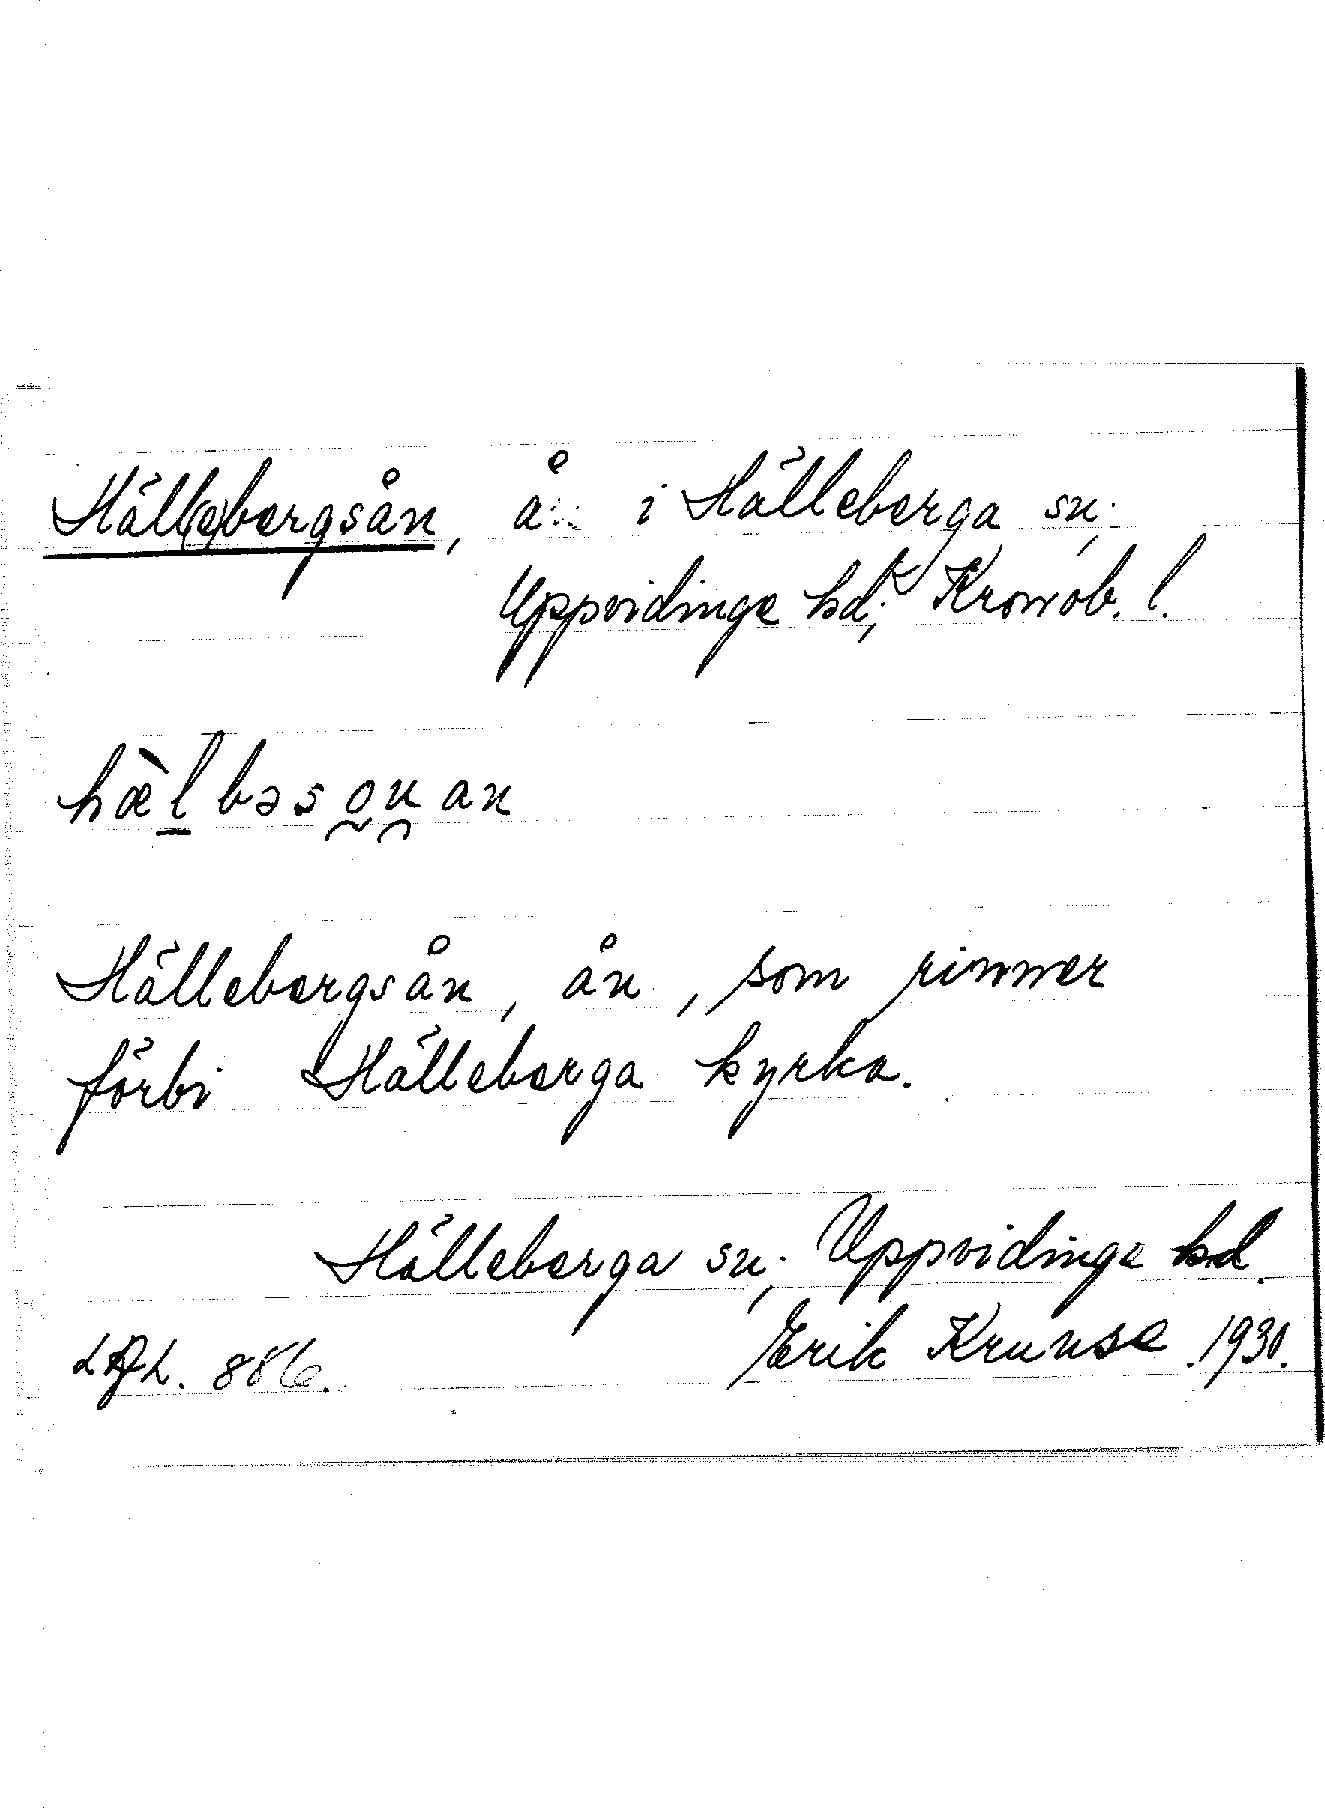 Häll(e)bergsån, å i Hälleberga sn,
Uppvidinge hd, Kronob. l.
hæ̀l̲bəso̰u̯an
Hällebergsån, ån, som rinner
förbi Hälleberga kyrka.
Hälleberga sn, Uppvidinge hd.
886. Erik Krunse 1930.